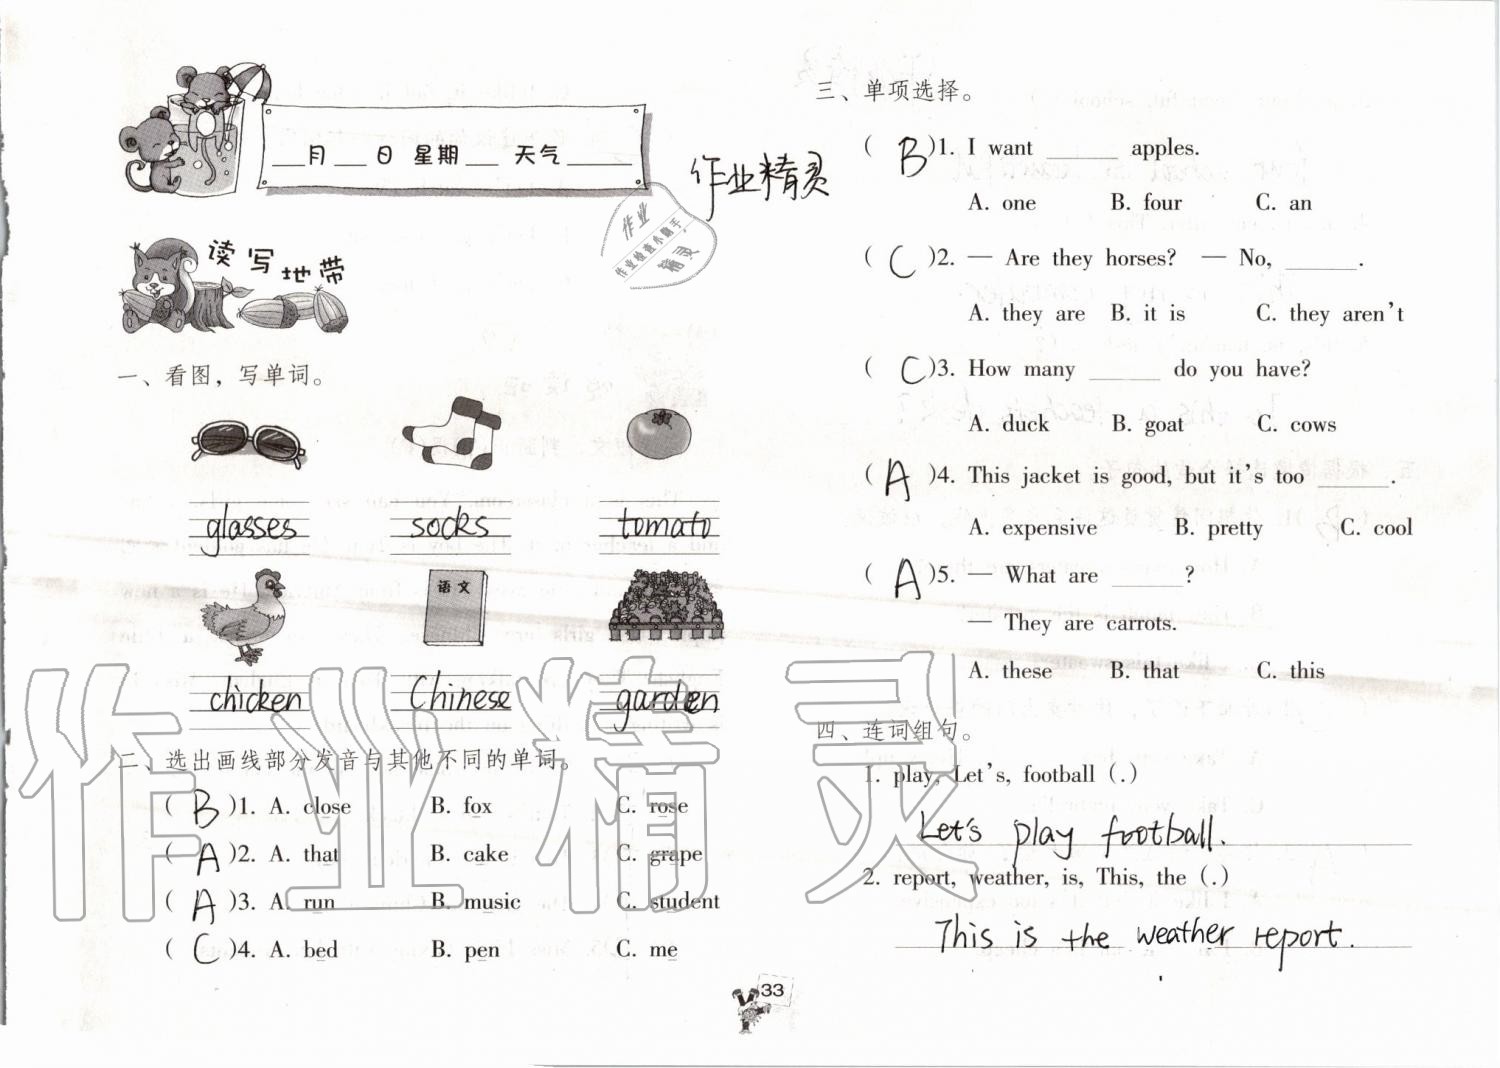 ___月___日 星期___ 天气______
作业精灵
作业
作业检查小助手
精灵
读写地带
一、看图，写单词。
glasses socks tomato
语文
chicken Chinese garden
二、选出画线部分发音与其他不同的单词。
( B )1. A. close B. fox C. rose
( A )2. A. that B. cake C. grape
( A )3. A. run B. music C. student
( C )4. A. bed B. pen C. me
三、单项选择。
( B )1. I want ______ apples.
A. one B. four C. an
( C )2. — Are they horses? — No, ______.
A. they are B. it is C. they aren't
( C )3. How many ______ do you have?
A. duck B. goat C. cows
( A )4. This jacket is good, but it's too ______.
A. expensive B. pretty C. cool
( A )5. — What are ______?
— They are carrots.
A. these B. that C. this
四、连词组句。
1. play, Let's, football (.)
Let's play football.
2. report, weather, is, This, the (.)
This is the weather report.
33
作业精灵